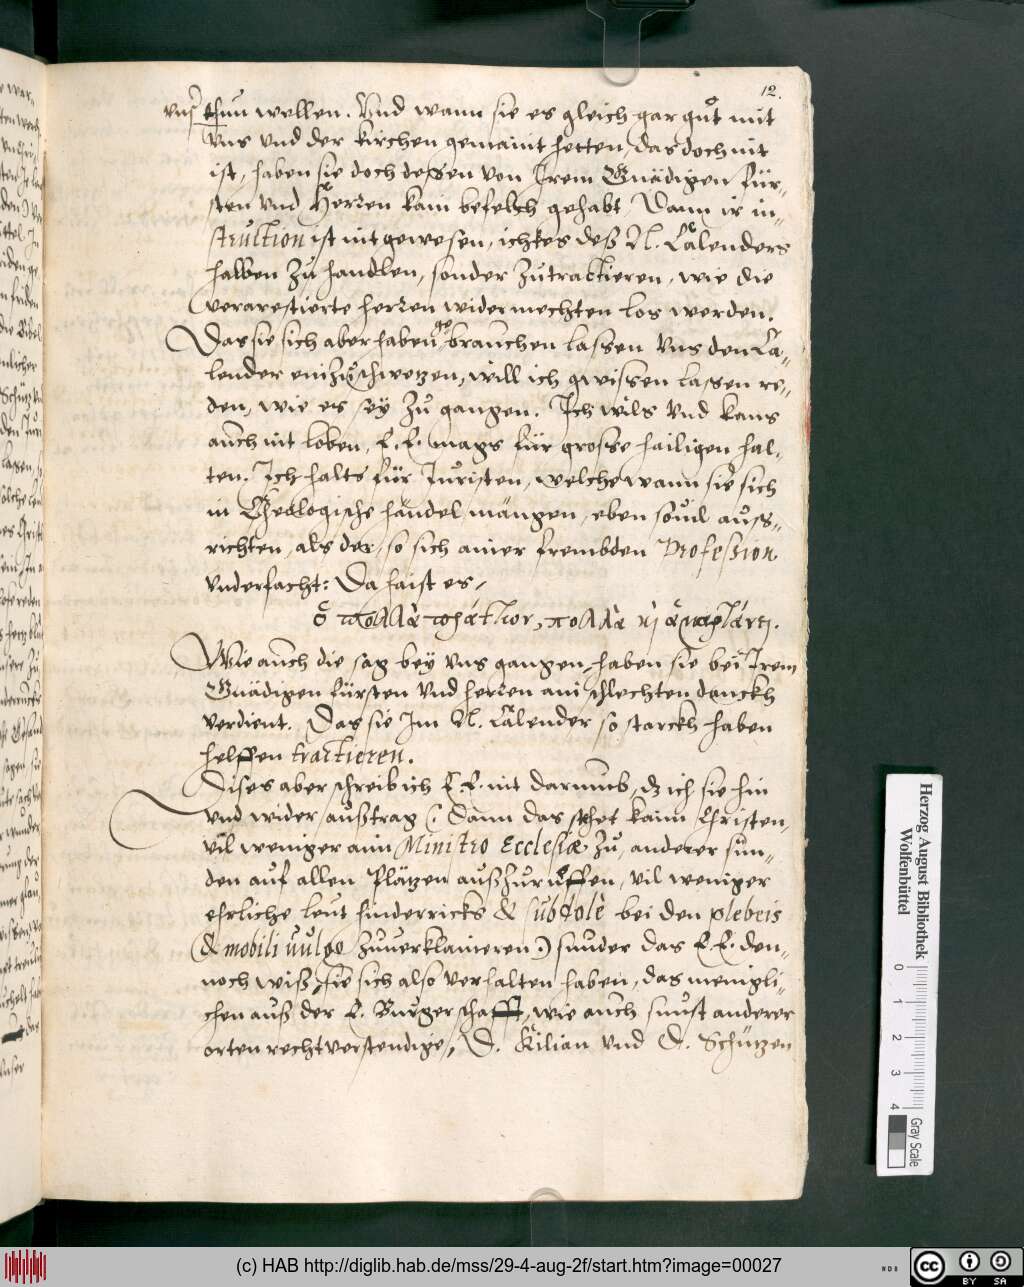 12.
vns thun wellen. Vnd wann sie es gleich gar gut mit
vns vnd der kirchen gemaint hetten, das doch nit
ist, haben sie doch dessen von Irem Gnädigen für-
sten vnd Herren kain befelch gehabt, Dann ir in-
struction ist nit gewesen, ichtes deß N. Calenders
halben zu handlen, sonder zutractieren, wie die
verarestierte herren wider mechten los werden.
Das sie sich aber haben gebrauchen lassen vns den Ca-
lender einzuschwetzen, will ich gwissen lassen re-
den, wie es sey zu gangen. Ich wils vnd kans
auch nit loben, E. E. mags für grosse hailigen hal-
ten. Ich halts für Iuristen, welche wann sie sich
in Theologische händel mängen, eben souil auss-
richten, als der, so sich ainer frembden Profession
vnderfacht: Da haist es,
ὁ πολλὰ πράττων, πολλὰ
Wie auch die sag bey vns gangen, haben sie bei Irem
Gnädigen fürsten vnd herren ain schlechten danckh
verdient. Das sie Im N. Calender so starckh haben
helffen tractieren.
Dises aber schreib ich E. E. nit darumb, dz ich sie hin
vnd wider außtrag (: dann das stehet kaim Christen,
vil weniger aim Ministro Ecclesiæ zu, anderer sün-
den auf allen Plätzen außzurueffen, vil weniger
ehrliche leut hinderricks & subdolè bei den plebeis
& mobili uulgo zuuerklaineren:) sunder das E. E. den-
noch wiß, sie sich also verhalten haben, das menigli-
chen auß der E. Burgerschafft, wie auch sunst anderer
orten rechtverstendige, D. Kilian vnd D. Schützen
Herzog August Bibliothek
Wolfenbüttel
0 1 2 3 4
Gray Scale
(c) HAB http://diglib.hab.de/mss/29-4-aug-2f/start.htm?image=00027
cc BY SA